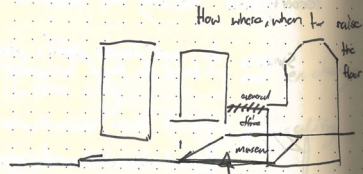 How where, when to raise
the
floor
covered
museum